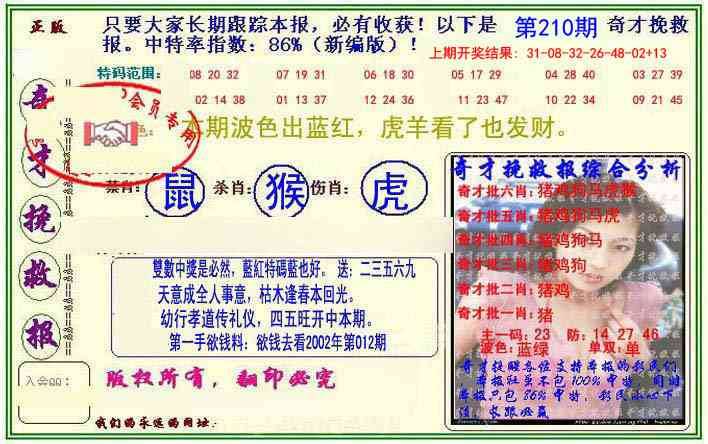 正版
只要大家长期跟踪本报，必有收获！以下是 第210期 奇才挽救
报。中特率指数：86%（新编版）！
上期开奖结果: 31-08-32-26-48-02+13
特码范围：
08 20 32 07 19 31 06 18 30 05 17 29 04 16 28 03 27 39
02 14 38 01 13 37 12 24 36 11 23 47 10 22 34 09 21 45
会员专用
本期波色出蓝红，虎羊看了也发财。
奇才挽救报
禁肖: 鼠 杀肖: 猴 伤肖: 虎
雙數中獎是必然，藍紅特碼藍也好。 送；二三五六九
天意成全人事意，枯木逢春本回光。
幼行孝道传礼仪，四五旺开中本期。
第一手欲钱料：欲钱去看2002年第012期
入会QQ：
版权所有，翻印必究
我们的永远的网址：
奇才挽救报综合分析
奇才批六肖:猪鸡狗马虎猴
奇才批五肖:猪鸡狗马虎
奇才批四肖:猪鸡狗马
奇才批三肖:猪鸡狗
奇才批二肖:猪鸡
奇才批一肖:猪
主一码：23 防：14 27 46
波色：蓝绿 单双：单
奇才挽救各位支持本报的彩民们
本报肚虽不包100%中特，同时
本报只包86%中特，彩民小心下
注，长跟必赢